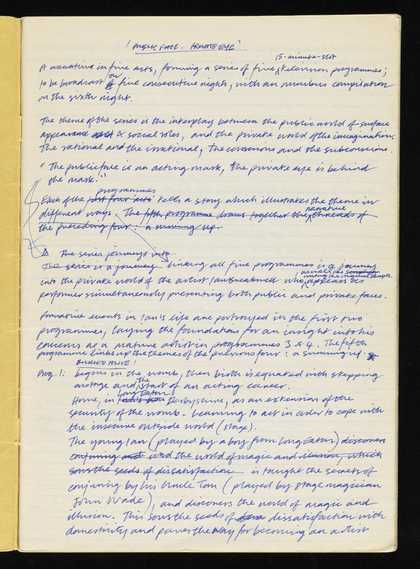 'PUBLIC FACE - PRIVATE EYE'
15-minute-slot
A narrative in fine arts, forming a series of five television programmes;
to be broadcast on five consecutive nights, with an omnibus compilation
on the sixth night.
The theme of the series is the interplay between the public world of surface
appearance & social roles, and the private world of the imagination.
The rational and the irrational, the conscious and the subconscious
"The public face is an acting mask, the private eye is behind
the mask."
programmes
Each of the post four acts tells a story which illustrates the theme in
narrative
different ways. The fifth programme draws together the threads of
the preceding four: a summing up.
The series journeys into
The series is a journey linking all five programmes is a journey
into the private world of the artist Ian Breakwell who appears as
performer simultaneously presenting both public and private faces.
Formative events in Ian's life are portrayed in the first two
programmes, laying the foundation for an insight into his
concerns as a mature artist in programmes 3 & 4. The fifth
programme links up the themes of the previous four: a summing up.
Prog. 1: begins in the womb, then birth is equated with stepping
onstage and the start of an acting career.
Long Eaton
Home, in Derbyshire, as an extension of the
security of the womb. Learning to act in order to cope with
the insecure outside world (stage).
The young Ian (played by a boy from Long Eaton) discovers
conjuring and the world of magic and illusion, which
sows the seeds of dissatisfaction is taught the secrets of
conjuring by his Uncle Tom (played by stage magician
John Wade), and discovers the world of magic and
illusion. This sows the seeds of dissatisfaction with
domesticity and paves the way for becoming an artist